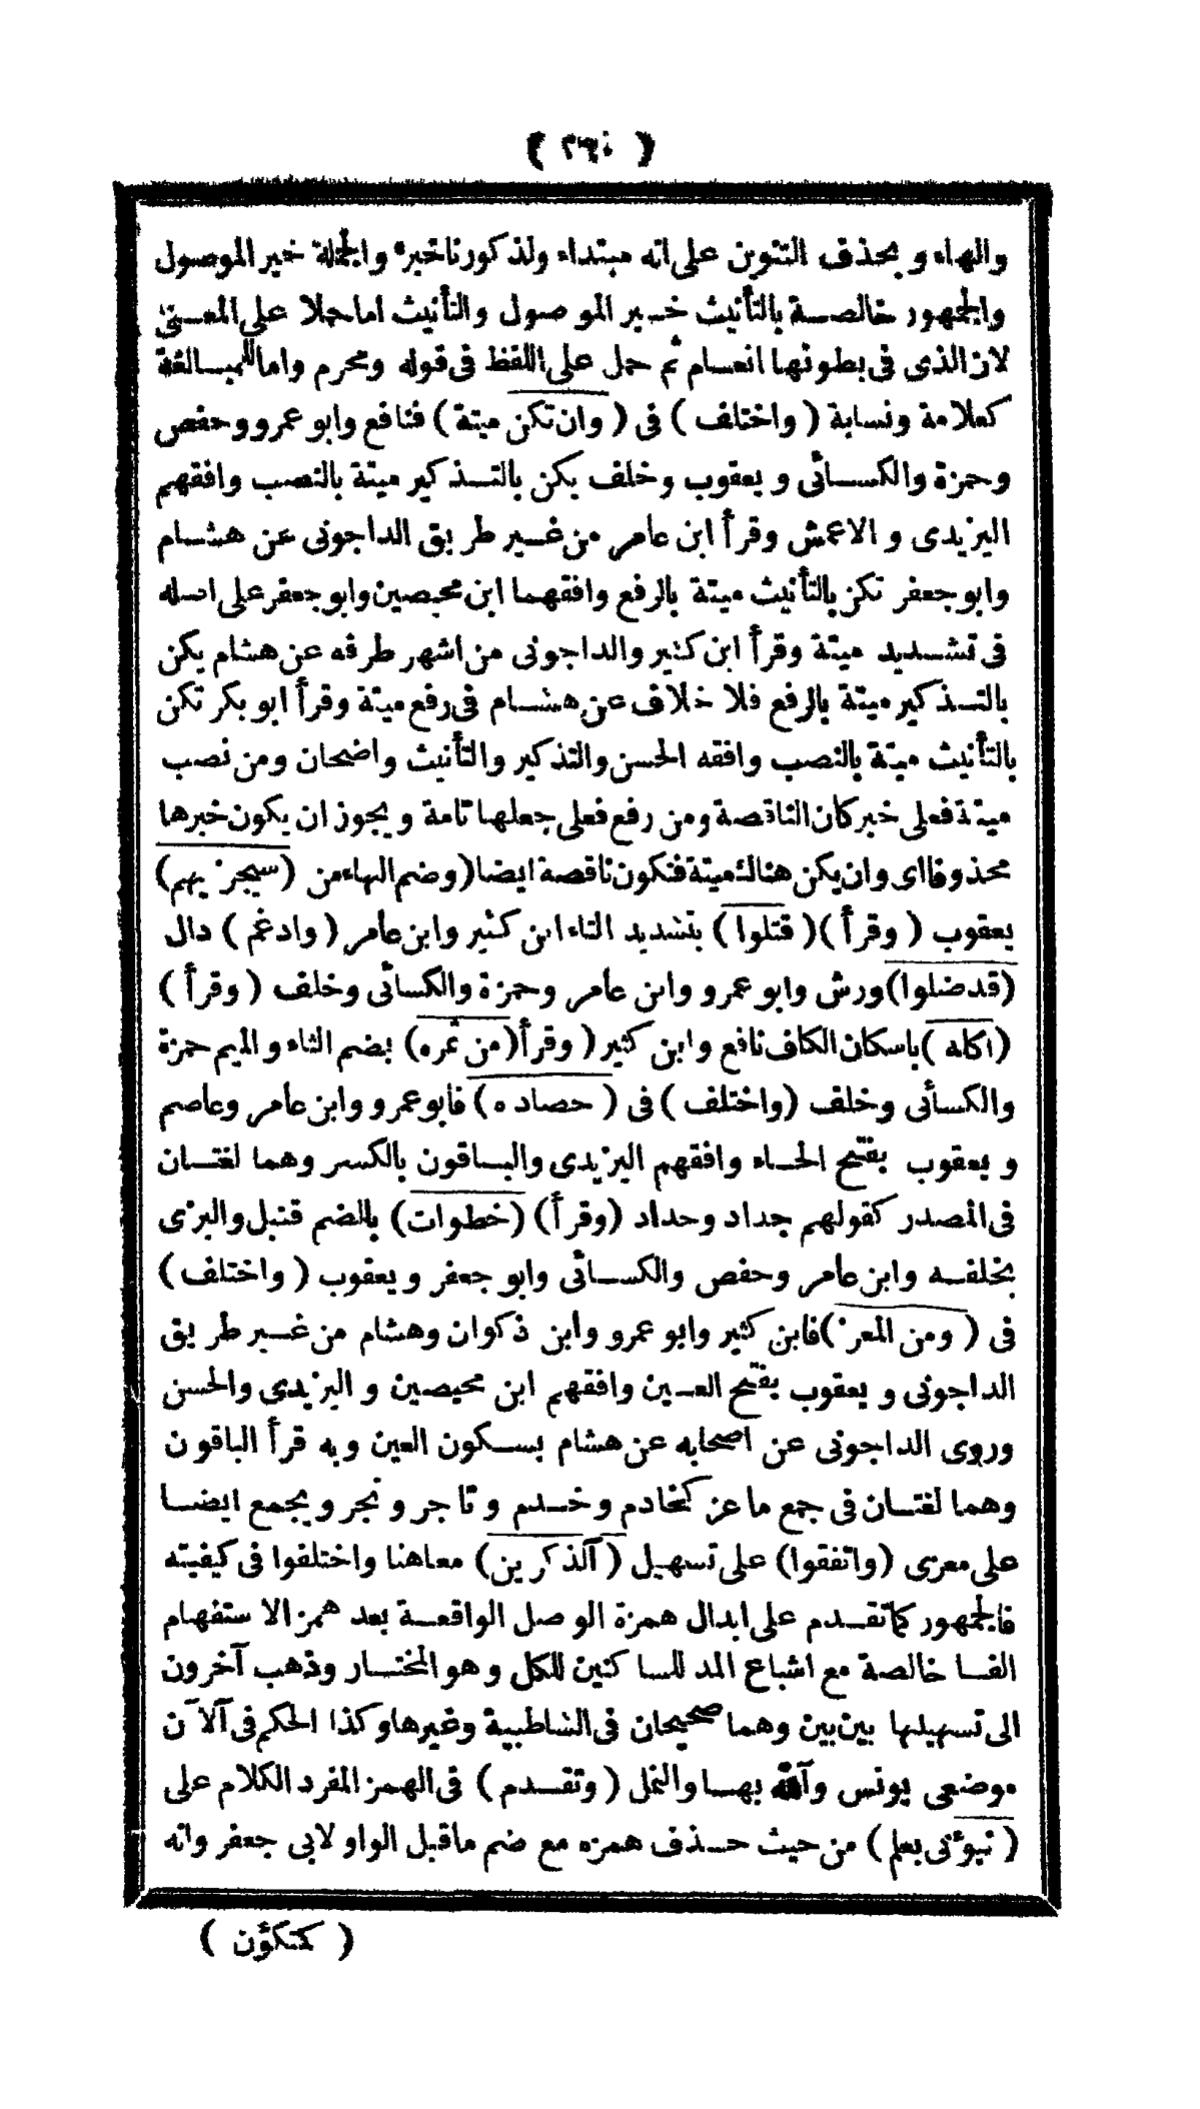 ( ٢٦٠ )
والهاء و بحذف التنوين على انه مبتداء ولذكورنا خبره والجملة خبر الموصول
والجمهور خالصة بالتأنيث خبر الموصول والتأنيث اما حملا على المعنى
لان الذى فى بطونها انعام ثم حمل على اللفظ فى قوله ومحرم واما للمبالغة
كعلامة ونسابة ( واختلف ) فى ( وان تكن ميتة ) فنافع وابو عمرو وحفص
وحمزة والكسائى و يعقوب وخلف يكن بالتذكير ميتة بالنصب وافقهم
اليزيدى و الاعمش وقرأ ابن عامر من غير طريق الداجونى عن هشام
وابو جعفر تكن بالتأنيث ميتة بالرفع وافقهما ابن محيصين وابو جعفر على اصله
فى تشديد ميتة وقرأ ابن كثير والداجونى من اشهر طرقه عن هشام يكن
بالتذكير ميتة بالرفع فلا خلاف عن هشام فى رفع ميتة وقرأ ابو بكر تكن
بالتأنيث ميتة بالنصب وافقه الحسن والتذكير والتأنيث واضحان ومن نصب
ميتة فعلى خبر كان الناقصة ومن رفع فعلى جعلها تامة و يجوز ان يكون خبرها
محذوفا اى وان يكن هنالك ميتة فتكون ناقصة ايضا ( وضم الهاء من ( سيجزيهم )
يعقوب ( وقرأ ) ( قتلوا ) بتشديد التاء ابن كثير وابن عامر ( وادغم ) دال
( قد ضلوا ) ورش وابو عمرو وابن عامر وحمزة والكسائى وخلف ( وقرأ )
( اكله ) باسكان الكاف نافع وابن كثير ( وقرأ ( من ثمره ) بضم الثاء والميم حمزة
والكسأئى وخلف ( واختلف ) فى ( حصاده ) فابو عمرو وابن عامر وعاصم
و يعقوب بفتح الحاء وافقهم اليزيدى والباقون بالكسر وهما لغتان
فى المصدر كقولهم جداد وحداد ( وقرأ ) ( خطوات ) بالضم قنبل والبزى
بخلفه وابن عامر وحفص والكسائى وابو جعفر و يعقوب ( واختلف )
فى ( ومن المعز ) فابن كثير وابو عمرو وابن ذكوان وهشام من غير طريق
الداجونى و يعقوب بفتح العين وافقهم ابن محيصين و اليزيدى والحسن
وروى الداجونى عن اصحابه عن هشام بسكون العين وبه قرأ الباقون
وهما لغتان فى جمع ماعز كخادم وخدم و تاجر و تجر و يجمع ايضا
على معزى ( واتفقوا ) على تسهيل ( آلذكرين ) معاهنا واختلفوا فى كيفيته
فالجمهور كما تقدم على ابدال همزة الوصل الواقعة بعد همز الاستفهام
الفا خالصة مع اشباع المد للساكنين للكل و هو المختار وذهب آخرون
الى تسهيلها بين بين وهما صحيحان فى الشاطبية وغيرها وكذا الحكم فى آلآن
موضعى يونس وآلله بها والنمل ( وتقدم ) فى الهمز المفرد الكلام على
( نبؤنى بعلم ) من حيث حذف همزه مع ضم ماقبل الواو لابى جعفر وانه
( كمتكؤن )